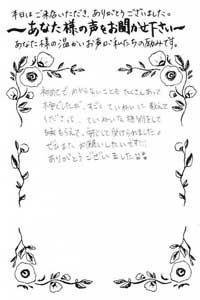 本日はご来店いただき、ありがとうございました。
〜あなた様の声をお聞かせ下さい〜
あなた様の温かいお声が私たちの励みです。
初めてで分からないことも たくさんあって
不安でしたが、すごく ていねいに 教えて
くださって、ていねいな 接客をして
もらえて、安心して 受けられました。
ぜひまた お願いしたいです!!!
ありがとう ございました